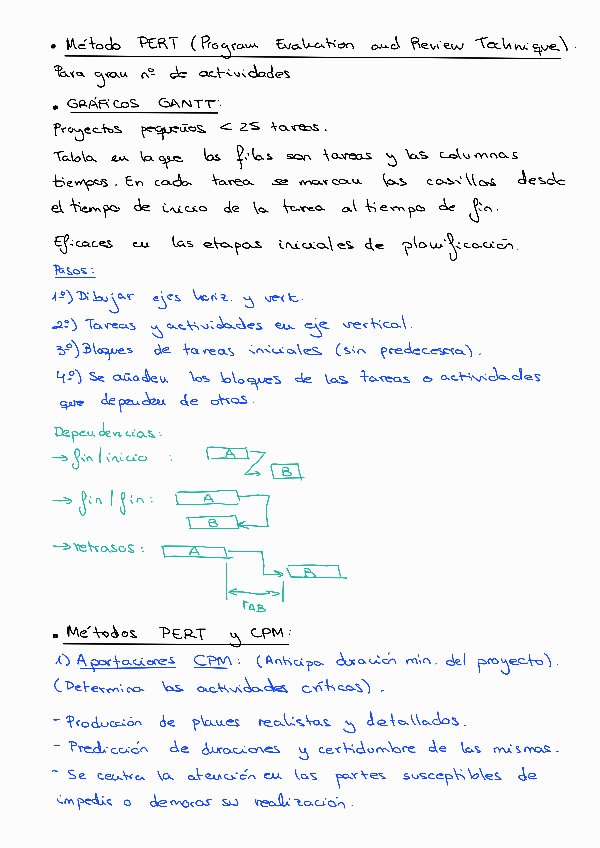 • Método PERT (Program Evaluation and Review Technique).
Para gran nº de actividades
• GRÁFICOS GANTT:
Proyectos pequeños < 25 tareas.
Tabla en la que las filas son tareas y las columnas
tiempos. En cada tarea se marcan las casillas desde
el tiempo de inicio de la tarea al tiempo de fin.
Eficaces en las etapas iniciales de planificación.
Pasos:
1º) Dibujar ejes horiz. y vert.
2º) Tareas y actividades en eje vertical.
3º) Bloques de tareas iniciales (sin predecesora).
4º) Se añaden los bloques de las tareas o actividades
que dependen de otras.
Dependencias:
→ fin/inicio : A
B
→ fin/fin: A
B
→ retrasos: A
B
rAB
• Métodos PERT y CPM:
1) Aportaciones CPM: (Anticipa duración min. del proyecto).
(Determina las actividades críticas).
- Producción de planes realistas y detallados.
- Predicción de duraciones y certidumbre de las mismas.
- Se centra la atención en las partes susceptibles de
impedir o demorar su realización.